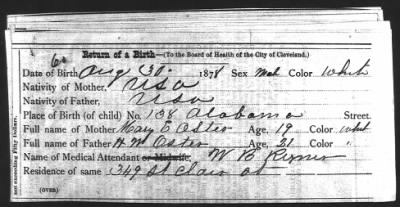 6
Return of a Birth—(To the Board of Health of the City of Cleveland.)
Date of Birth Aug 30. 1878 Sex Mal Color White
Nativity of Mother, USA
Nativity of Father, USA
Place of Birth (of child) No. 138 Alabama Street.
Full name of Mother Mary E Oster Age, 19 Color whit
Full name of Father H M Oster Age, 21 Color "
Name of Medical Attendant or Midwife, W B
Residence of same 1349 St Clair st
(OVER)
not exceeding Fifty Dollars.